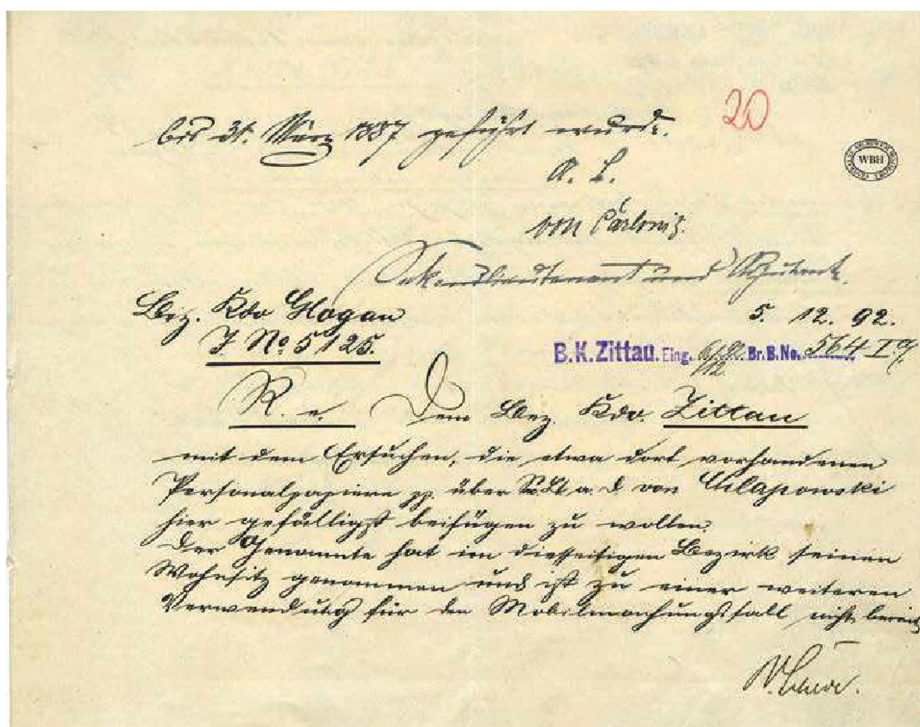 20
bis 31. März 1887 geführt wurde.
WBH
A. L.
von Carlowitz.
Sekondlieutenant und Adjutant.
Bez. Kdo Glogau
5. 12. 92.
J. No 5125.
B.K.Zittau. Eing. Br.B.No. 564 I
R. e. Dem Bez. Kdo. Zittau
mit dem Ersuchen, die etwa dort vorhandenen
Personalpapiere pp. über a. D. von Chlapowski
hier gefälligst beifügen zu wollen.
Der Genannte hat im diesseitigen Bezirk seinen
Wohnsitz genommen und ist zu einer weiteren
Verwendung für den Mobilmachungsfall nicht bereit